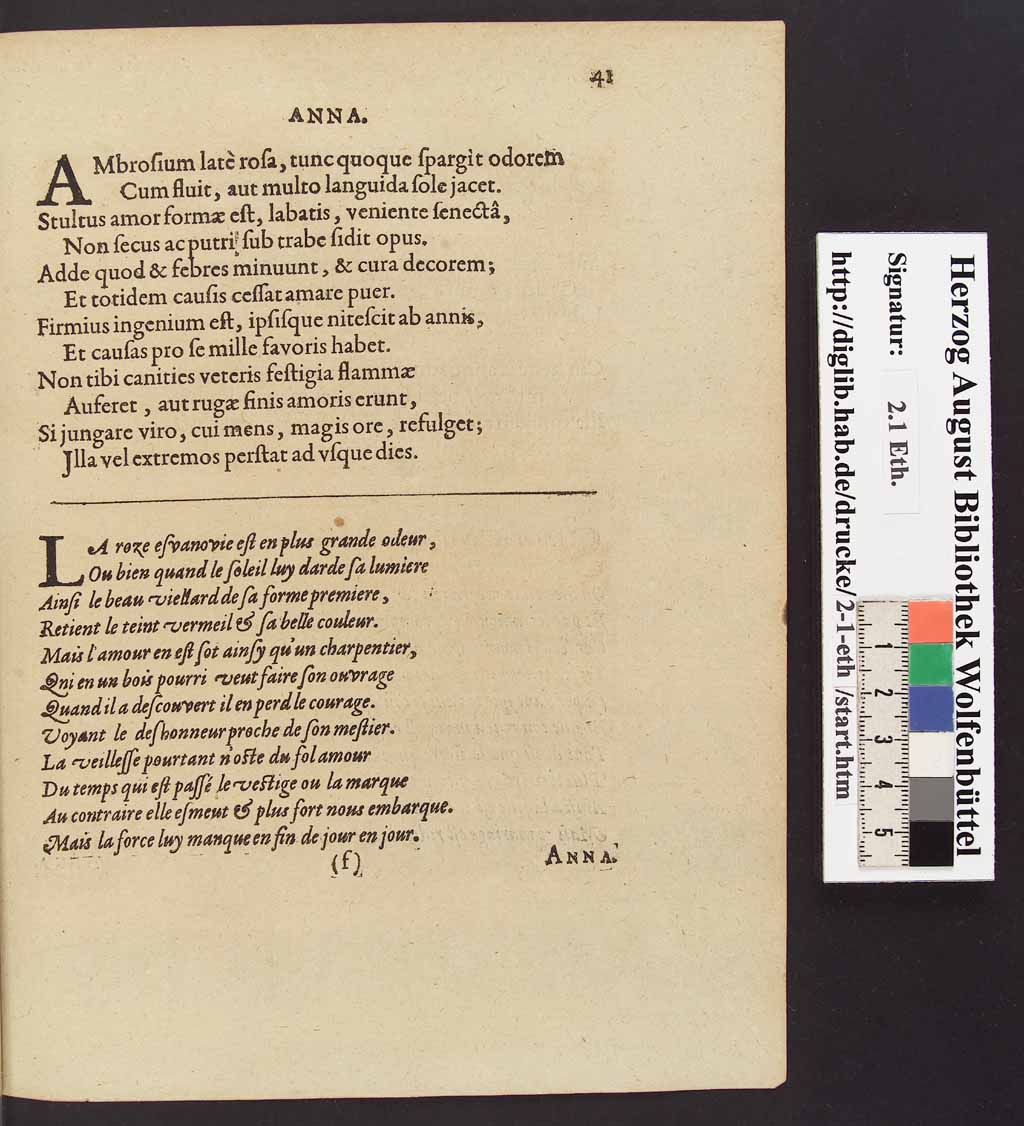 41
ANNA.
AMbroſium latè roſa, tunc quoque ſpargit odorem
Cum fluit, aut multo languida ſole jacet.
Stultus amor formæ eſt, labatis, veniente ſenectâ,
Non ſecus ac putri ſub trabe ſidit opus.
Adde quod & febres minuunt, & cura decorem;
Et totidem cauſis ceſſat amare puer.
Firmius ingenium eſt, ipſiſque niteſcit ab annis,
Et cauſas pro ſe mille favoris habet.
Non tibi canities veteris feſtigia flammæ
Auferet, aut rugæ finis amoris erunt,
Si jungare viro, cui mens, magis ore, refulget;
Jlla vel extremos perſtat ad vſque dies.
LA roze eſvanovie eſt en plus grande odeur,
Ou bien quand le ſoleil luy darde ſa lumiere
Ainſi le beau viellard de ſa forme premiere,
Retient le teint vermeil & ſa belle couleur.
Mais l'amour en eſt ſot ainſy qu'un charpentier,
Qni en un bois pourri veut faire ſon ouvrage
Quand il a deſcouvert il en perd le courage.
Voyant le deſhonneur proche de ſon meſtier.
La veilleſſe pourtant n'oſte du fol amour
Du temps qui eſt paſſé le veſtige ou la marque
Au contraire elle eſmeut & plus fort nous embarque.
Mais la force luy manque en fin de jour en jour.
(f)
ANNA.
Herzog August Bibliothek Wolfenbüttel
Signatur: 2.1 Eth.
http://diglib.hab.de/drucke/2-1-eth/start.htm
1 2 3 4 5